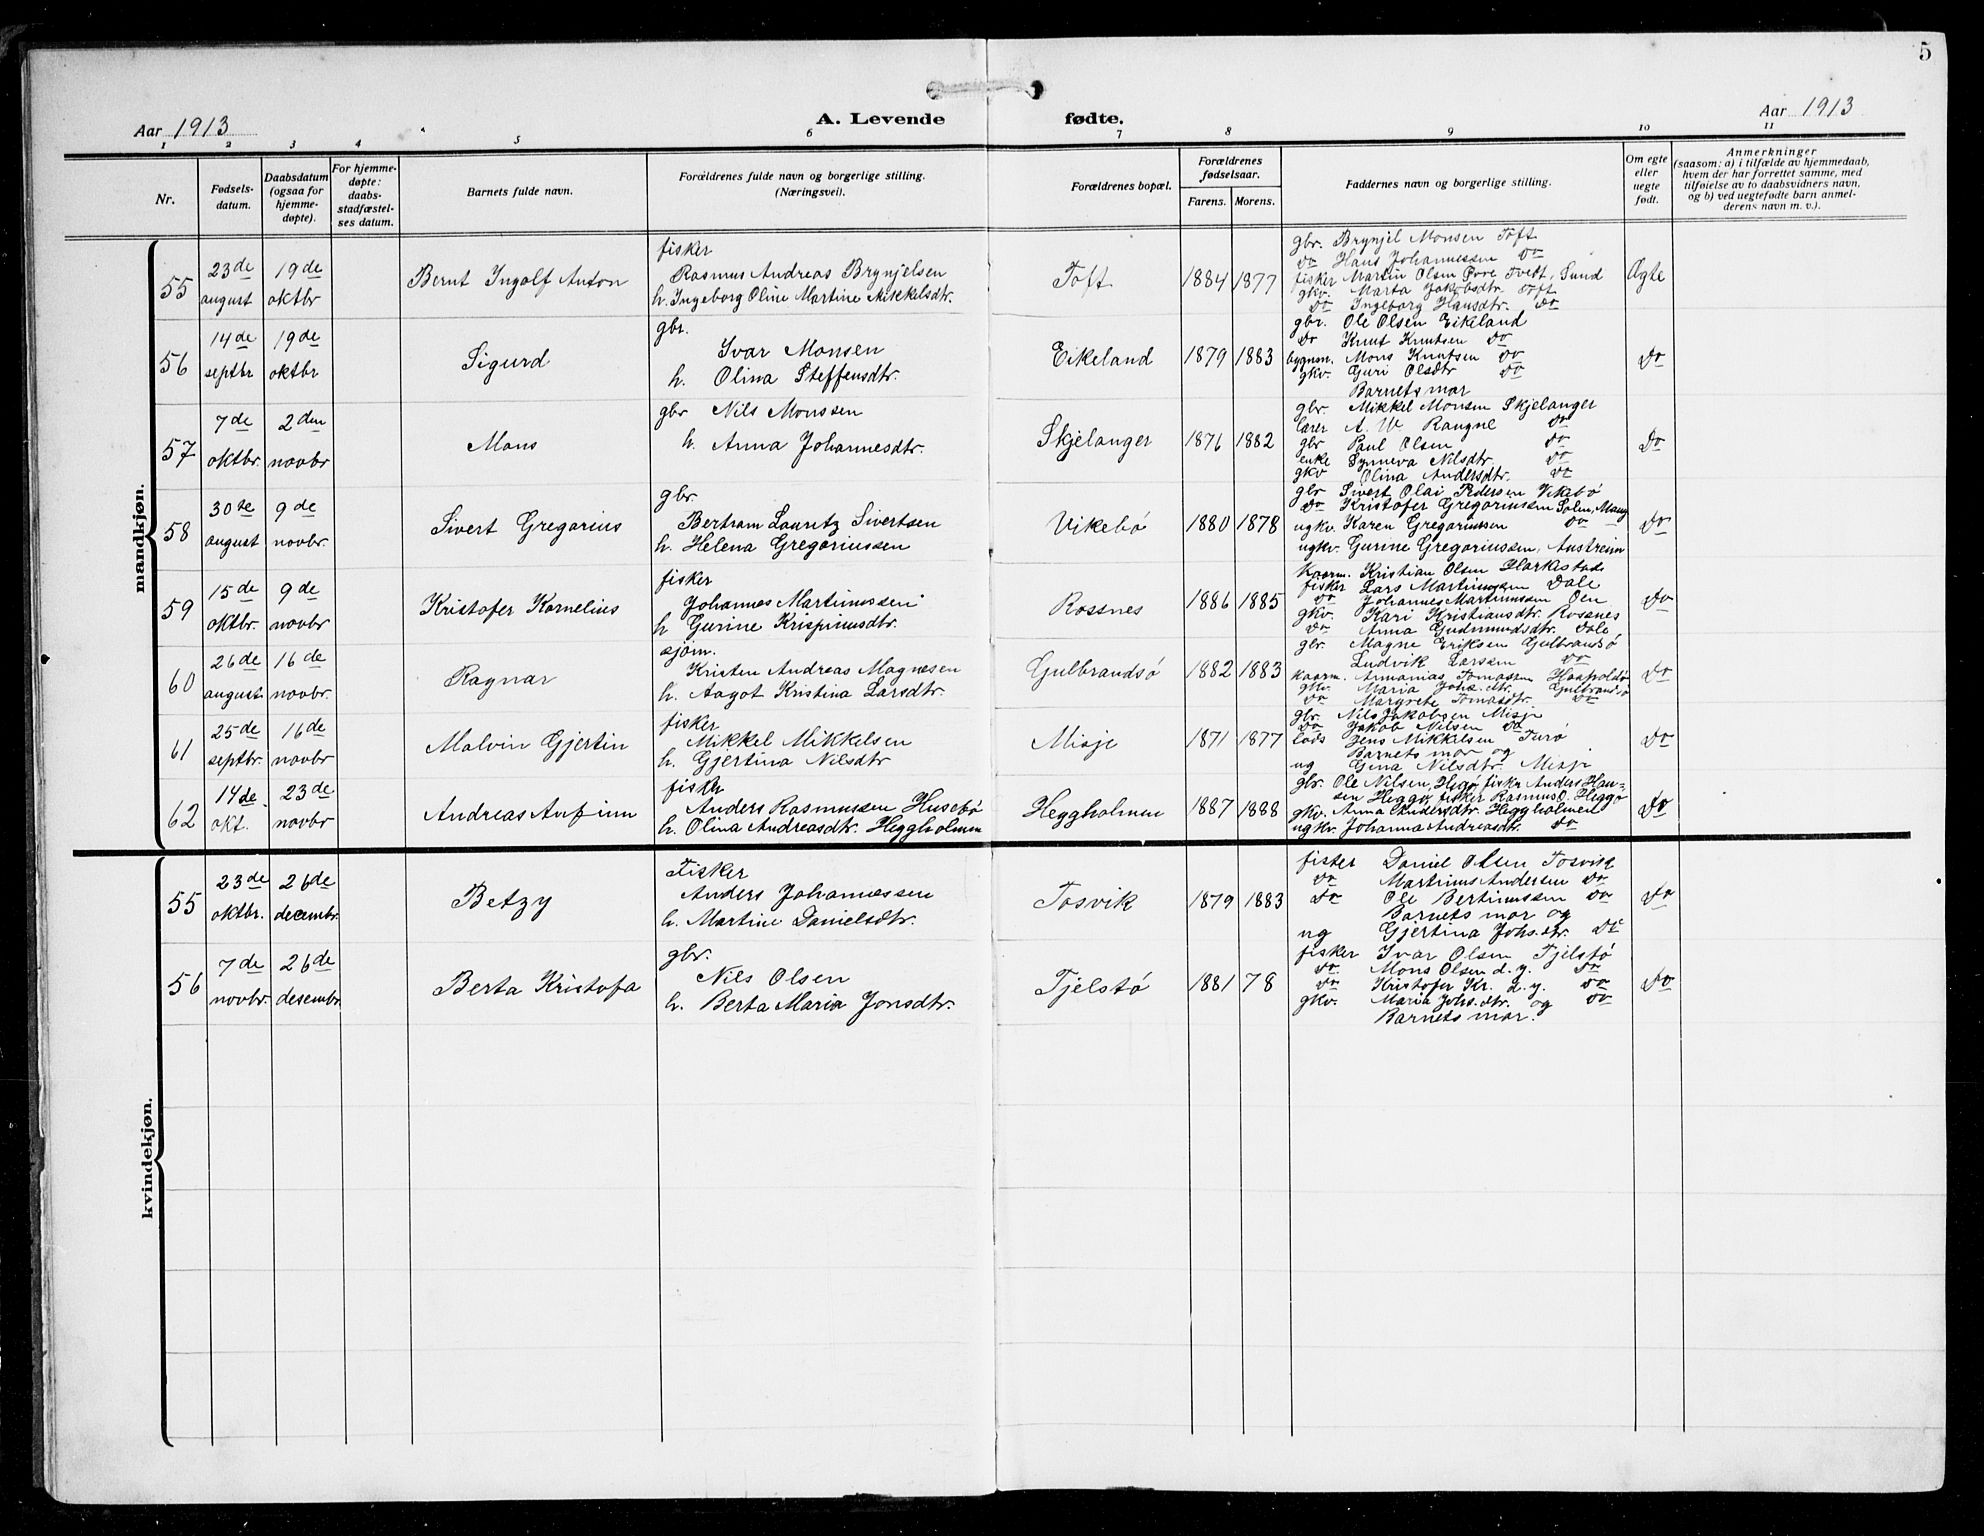 5
Aar 1913
A. Levende fødte.
Aar 1913
1 2 3 4 5 6 7 8 9 10 11
Nr.
Fødsels-
datum.
Daabsdatum
(ogsaa for
hjemme-
døpte).
For hjemme-
døpte:
daabs-
stadfæstel-
ses datum.
Barnets fulde navn.
Forældrenes fulde navn og borgerlige stilling.
(Næringsvei).
Forældrenes bopæl.
Forældrenes
fødselsaar.
Farens. Morens.
Faddernes navn og borgerlige stilling.
Om egte
eller
uegte
født.
Anmerkninger
(saasom: a) i tilfælde av hjemmedaab,
hvem der har forrettet samme, med
tilføielse av to daabsvidners navn,
og b) ved uegtefødte barn anmel-
derens navn m. v.).
mandkjøn.
55
23de august
19de oktbr
Bernt Ingolf Anton
fisker
Rasmus Andreas Brynjelsen
h. Ingeborg Oline Martine Mikkelsdtr.
Toft
1884 1877
gbr. Brynjel Monsen Toft
do Hans Johannessen do
fisker Martin Olsen Øvre Tvedt, Sund
gkv. Marta Jakobsdtr. Toft
do Ingeborg Hansdtr. do
Ægte
56
14de septbr
19de oktbr
Sigurd
gbr.
Ivar Monsen
h. Olina Steffensdtr.
Eikeland
1879 1883
gbr. Ole Olsen Eikeland
do Knut Knutsen do
bygnsm. Mons Knutsen do
gkv. Guri Olsdtr do
Barnets mor
do
57
7de oktbr.
2den novbr
Mons
gbr Nils Monssen
h. Anna Johannesdtr.
Skjelanger
1876 1882
gbr. Mikkel Monsen Skjelanger
lærer A. W. Rangne do
gbr Paul Olsen do
enke Synneva Nilsdtr. do
gkv Olina Andersdtr. do
do
58
30te august
9de novbr.
Sivert Gregorius
gbr.
Bertram Lauritz Sivertsen
h. Helena Gregoriussen
Vikebø
1880 1878
gbr Sivert Olai Pedersen Vikebø
do Kristofer Gregoriussen Solem, Mang
ugkv. Karen Gregoriussen do
ugkv. Gurine Gregoriussen, Austreim
do
59
15de oktbr.
9de novbr
Kristofer Kornelius
fisker
Johannes Martinussen
h Gurine Krispinusdtr.
Rossnes
1886 1885
Kaarm. Kristian Olsen
fisker Lars Martinussen Dale
do Johannes Martinussen Oen
gkv. Kari Kristiansdtr. Rossnes
do Anna Gudmundsdtr. Dale
do
60
26de august
16de novbr.
Ragnar
sjøm.
Kristen Andreas Magnesen
h. Aagot Kristina Larsdtr.
Gulbrandsø
1882 1883
gbr. Magne Eriksen Gulbrandsø
Ludvik Larssen do
Kaarm. Annanias Tomassen
gkv. Maria Johs. dtr. Gulbrandsø
do Margrete Tomasdtr. do
do
61
25de septbr.
16de novbr
Malvin Gjertin
fisker
Mikkel Mikkelsen
h. Gjertina Nilsdtr
Misje
1871 1877
gbr. Nils Jakobsen Misje
do Jakob Nilsen do
lods Jens Mikkelsen Turø
Barnets mor og
ug Gina Nilsdtr. Misje
do
62
14de okt.
23de novbr
Andreas Anfinn
fisker
Anders Rasmussen Husebø
h. Olina Andreasdtr. Heggholmen
Heggholmen
1887 1888
gbr. Ole Nilsen, Heggø, fiskr Anders Han-
sen Heggø, fisker Rasmus O. Heggø
gkv. Anna Andersdtr. Heggholmen
ugkv. Johanna Andreasdtr. do
do
kvindekjøn.
55
23de oktbr.
26de decembr.
Betzy
Fisker
Anders Johannessen
h. Martine Danielsdtr.
Tosvik
1879 1883
fisker Daniel Olsen Tosvik
do Martinus Andersen do
do Ole Bertinussen do
Barnets mor og
ug Gjertina Johs. dtr. do
do
56
7de novbr.
26de desembr.
Berta Kristofa
gbr.
Nils Olsen
h. Berta Maria Jonsdtr.
Tjelstø
1881 78
fisker Ivar Olsen Tjelstø
do. Mons Olsen d. y. do
do Kristofer Kr. d. y. do
gkv. Maria Johs. dtr. og do
Barnets mor.
do